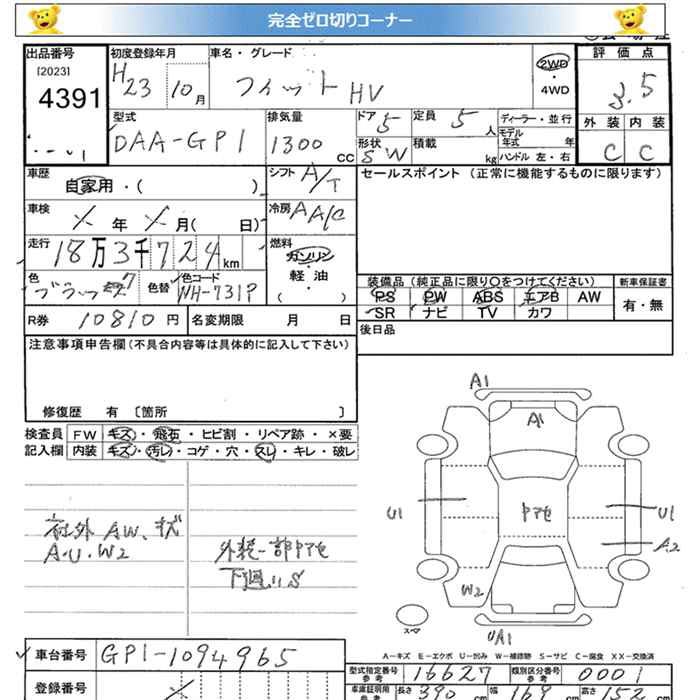 完全ゼロ切りコーナー
出品番号 初度登録年月 車名・グレード 評価点
[2023]
4391 H23 10月 フィット HV 2WD・4WD 3.5
型式 排気量 ドア 5 定員 5人 ディーラー・並行 外装 内装
DAA-GP1 1300cc 形状 SW 積載 kg モデル年式 年 ハンドル 左・右 C C
車歴 自家用・( ) シフト A/T セールスポイント (正常に機能するものに限ります)
車検 年 月( 日) 冷房 AA/C
走行 18万3千724km 燃料 ガソリン・軽油 ( )
色 色替 色コード NH-731P
装備品 (純正品に限り○をつけてください) 新車保証書
PS PW ABS エアB AW 有・無
SR ナビ TV カワ
R券 10810円 名変期限 月 日 後日品
注意事項申告欄 (不具合内容等は具体的に記入して下さい)
修復歴 有 〔箇所 〕
検査員 FW キズ・飛石・ヒビ割・リペア跡・×要
記入欄 内装 キズ・汚レ・コゲ・穴・スレ・キレ・破レ
社外 AW、キズ
A・U・W2
外装一部ヤケ
下廻りS
A1
A1
U1 U1
A2
W2
A1
スペア
A-キズ E-エクボ U-凹み W-補修跡 S-サビ C-腐食 XX-交換済
車台番号 GP1-1094965
型式指定番号 参考 16627 類別区分番号 参考 0001
登録番号
車庫証明用 参考 長さ 390 cm 幅 169 cm 高さ 152 cm